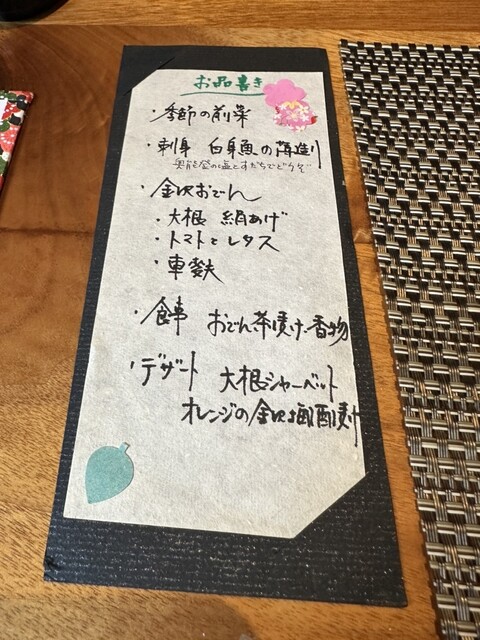 お品書き
・季節の前菜
・刺身 白身魚の薄造り
奥能登の塩とすだちでどうぞ
・金沢おでん
・大根 絹あげ
・トマトとレタス
・車麩
・食事 おでん茶漬け・香物
・デザート 大根シャーベット
オレンジの金沢梅酒漬け